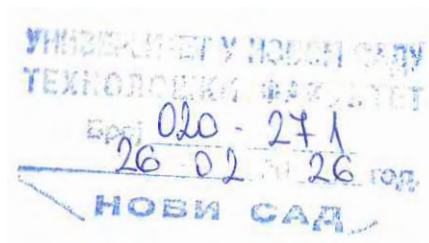 УНИВЕРЗИТЕТ У НОВОМ САДУ
ТЕХНОЛОШКИ ФАКУЛТЕТ
Број 020 - 271
26 02 20 26 год.
НОВИ САД